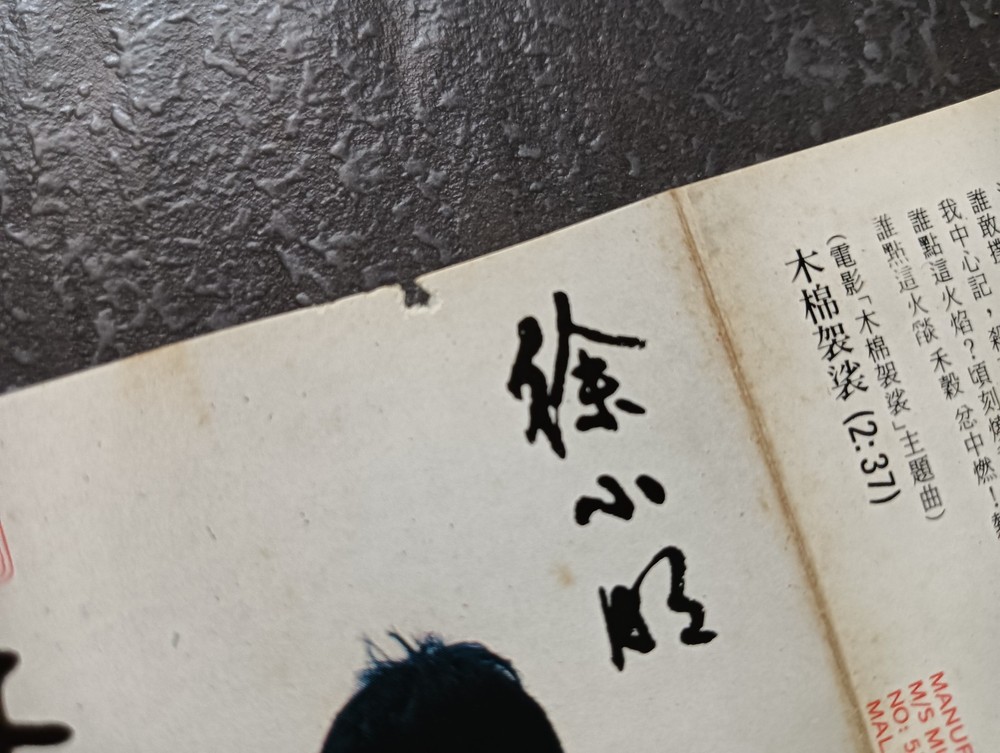 徐小明
木棉袈裟 (2:37)
(電影「木棉袈裟」主題曲)
誰點這火燄 禾穀 忿中燃!
誰點這火焰?頃刻
我中心記,殺
誰敢
MANUF
M/S M
NO: 5
MAL